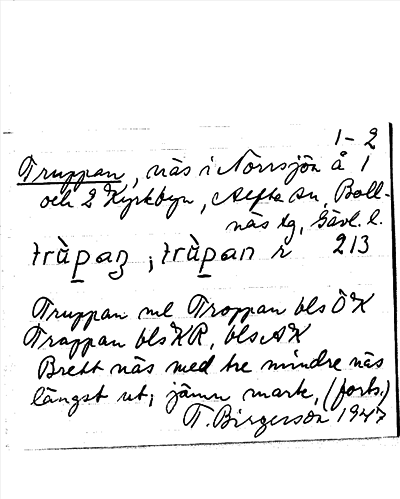 1-2
Truppan, näs i Norrsjön å 1
och 2 Kyrkbyn, Alfta sn, Boll-
näs tg, Gävl. l.
213
Truppan ml Troppan bls ÖK
Trappan bls KR, bls AK
Brett näs med tre mindre näs
längst ut, jämn mark, (forts.)
T. Birgerson 1947